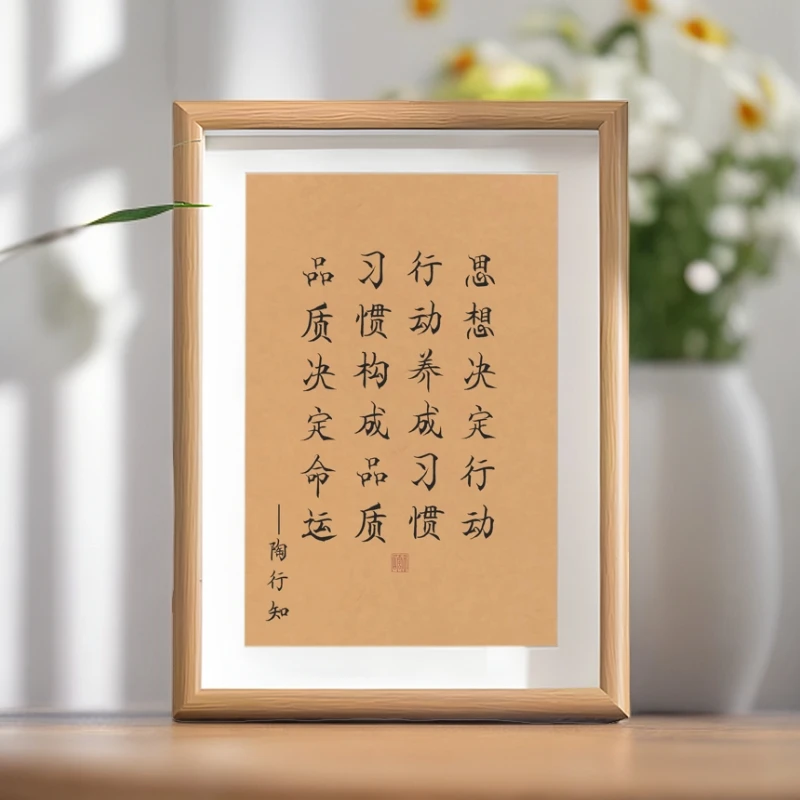 思想决定行动
行动养成习惯
习惯构成品质
品质决定命运
—陶行知